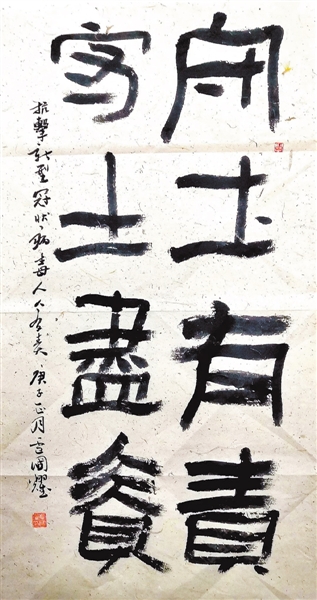 守土有責
守土盡責
抗擊新型冠狀病毒人人有責 庚子正月 國耀